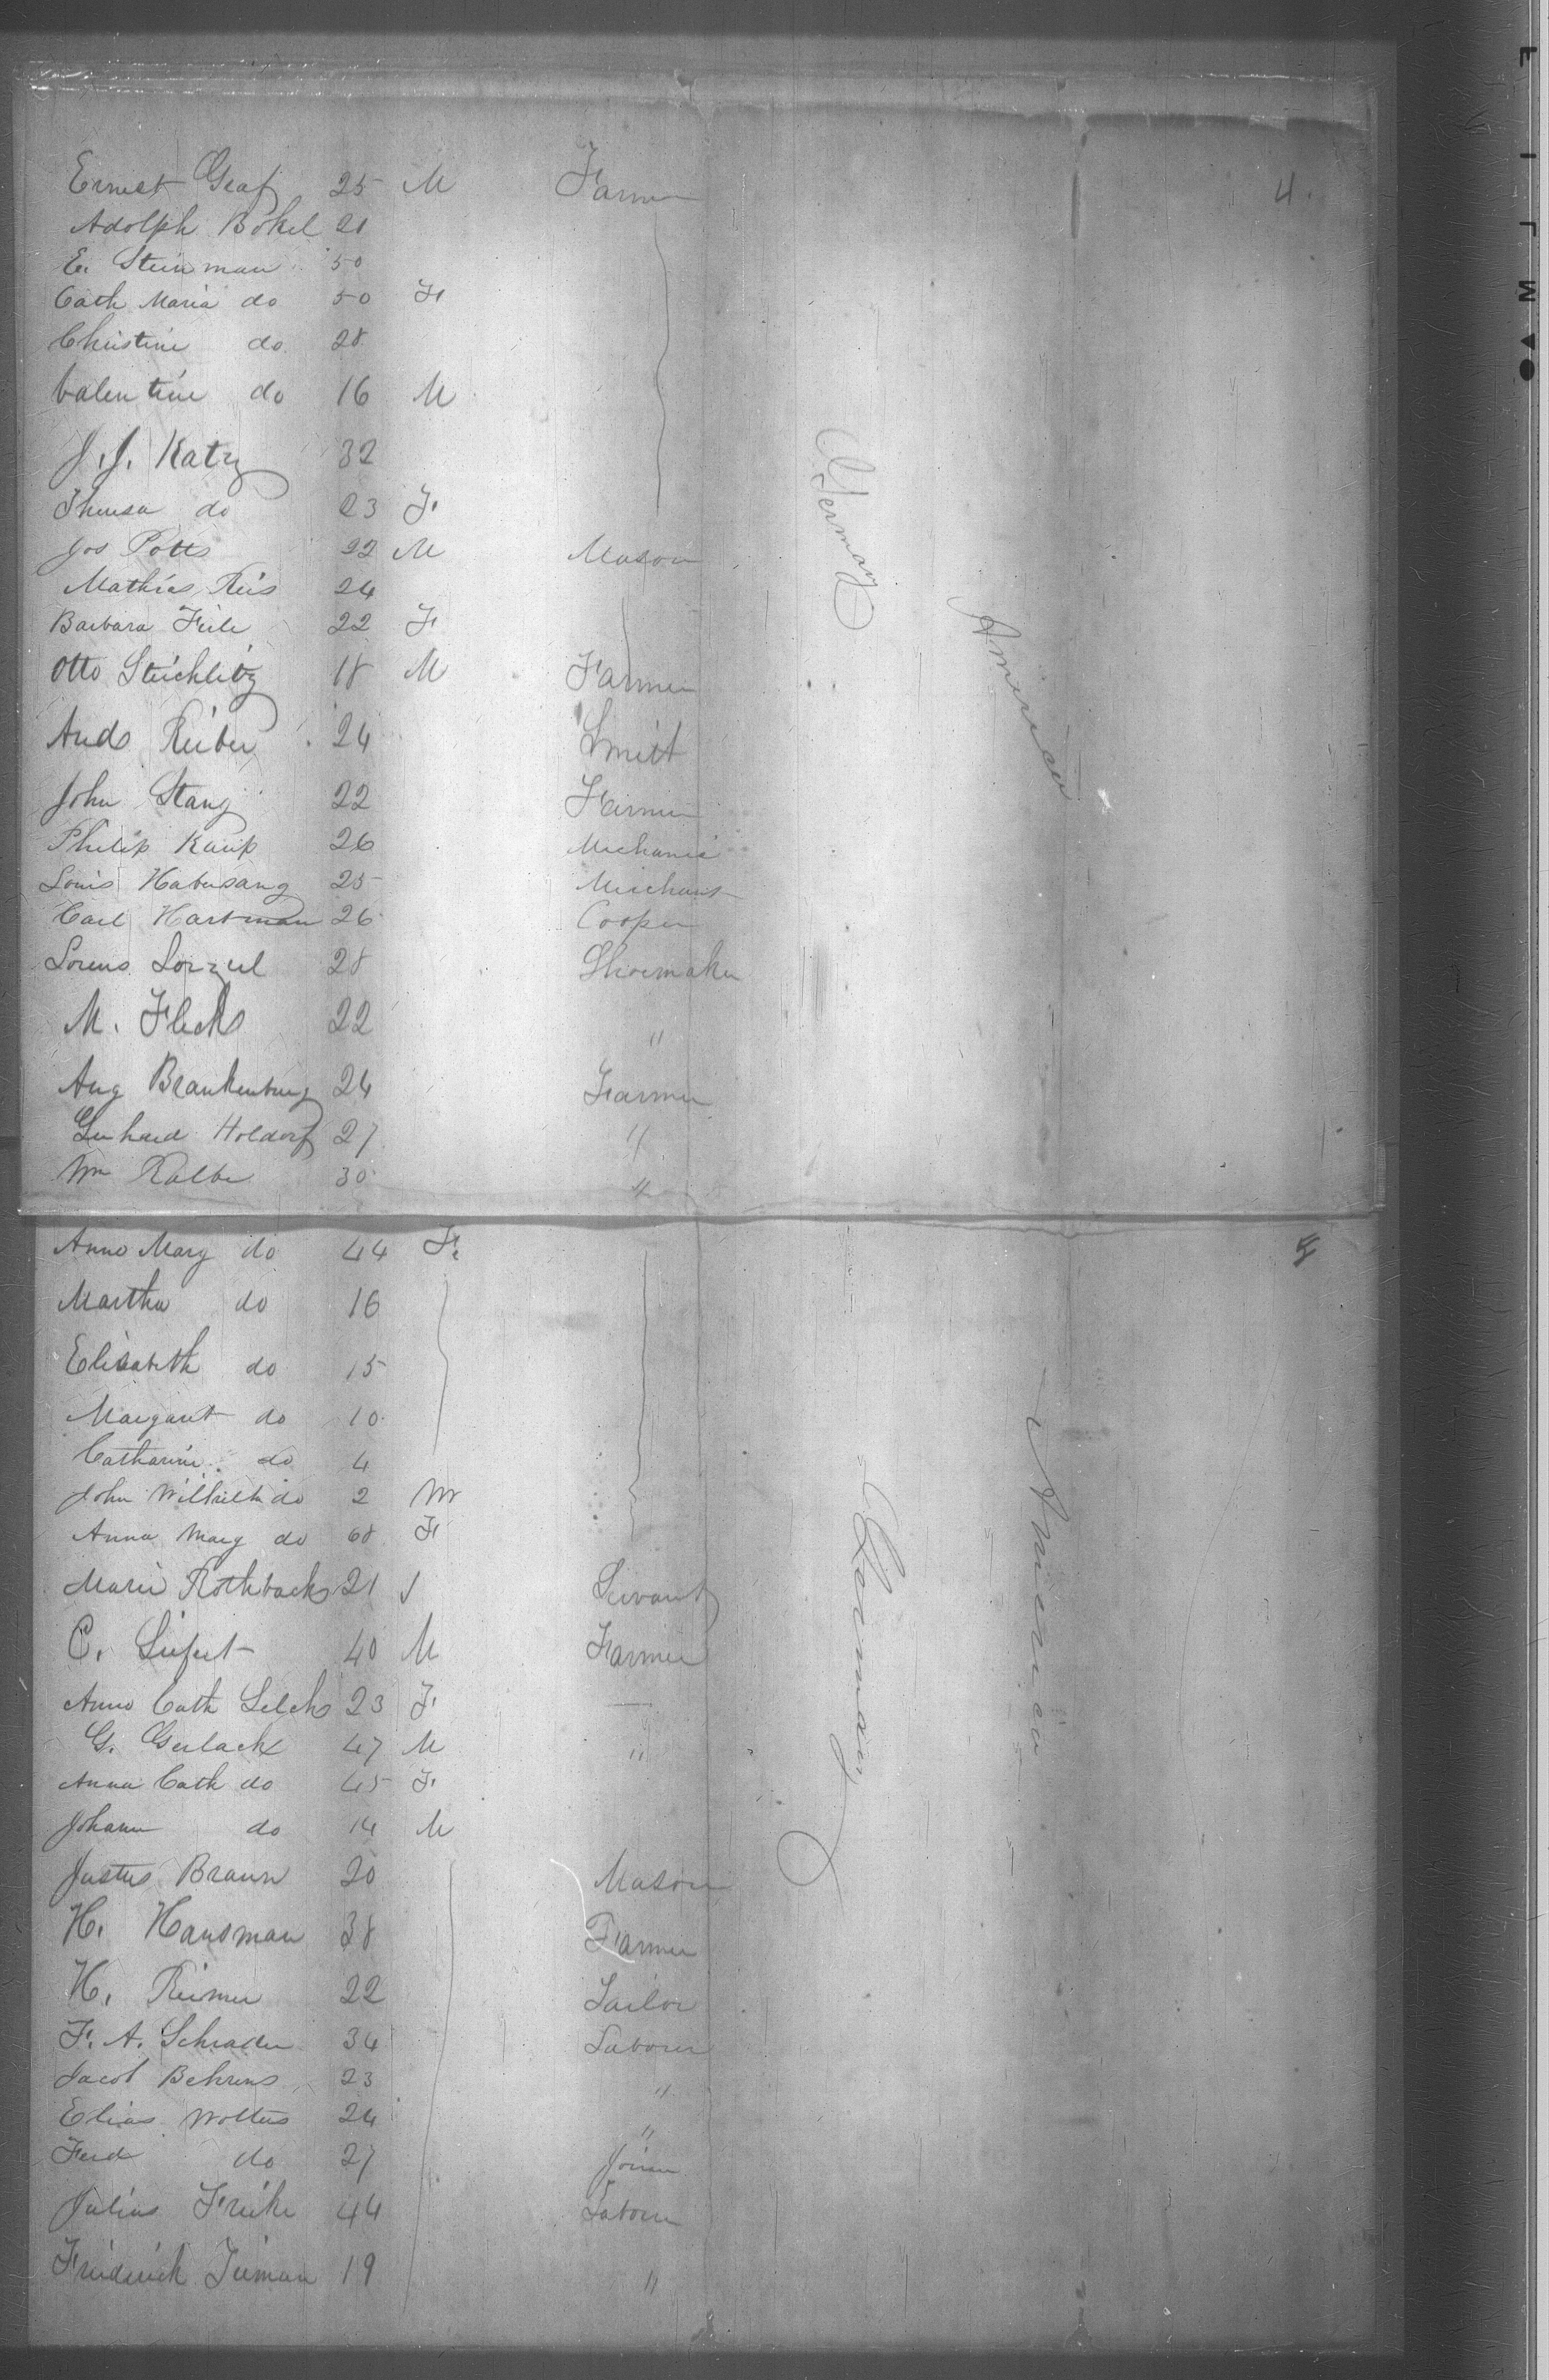 Ernest Graf 25 M Farmer 4.
Adolph Bokel 21
E. Steinman 50
Cath Maria do 50 F
Christine do 28
Valentine do 16 M
J. J. Katz 32
Theresa do 23 F
Jos Potts 22 M Mason
Mathias Reis 24
Barbara 22 F
Otto 18 M Farmer
Andr Reiber 24 Smitt
John Stang 22 Farmer
Philip Kaup 26 Mechanic
Louis Habersang 25 Merchant
Carl Hartman 26 Cooper
Lorens 28 Shoemaker
M. Fleck 22 "
Aug Brankenburg 24 Farmer
Gerhard Holdorf 27 "
Wm Kalbe 30 "
Germany
America
Anna Marg do 44 F. 5
Martha do 16
Elisabeth do 15
Margaret do 10
Catharine do 4
John Wilhelm do 2 M
Anna Marg do 68 F
Marie Rothback 21 Servant
C. Siefert 40 M Farmer
Anna Cath 23 F —
G. Gerlack 47 M "
Anna Cath do 45 F
Johann do 14 M
Justus Braun 20 Mason
H. Hausman 38 Farmer
H. Reimer 22 Tailor
F. A. Schrader 34 Laborer
Jacob Behrens 23 "
Elias Wolters 24 "
Ferd do 27 Joiner
Julius Freike 44 Laborer
Friederick 19 "
Germany
America
FILM